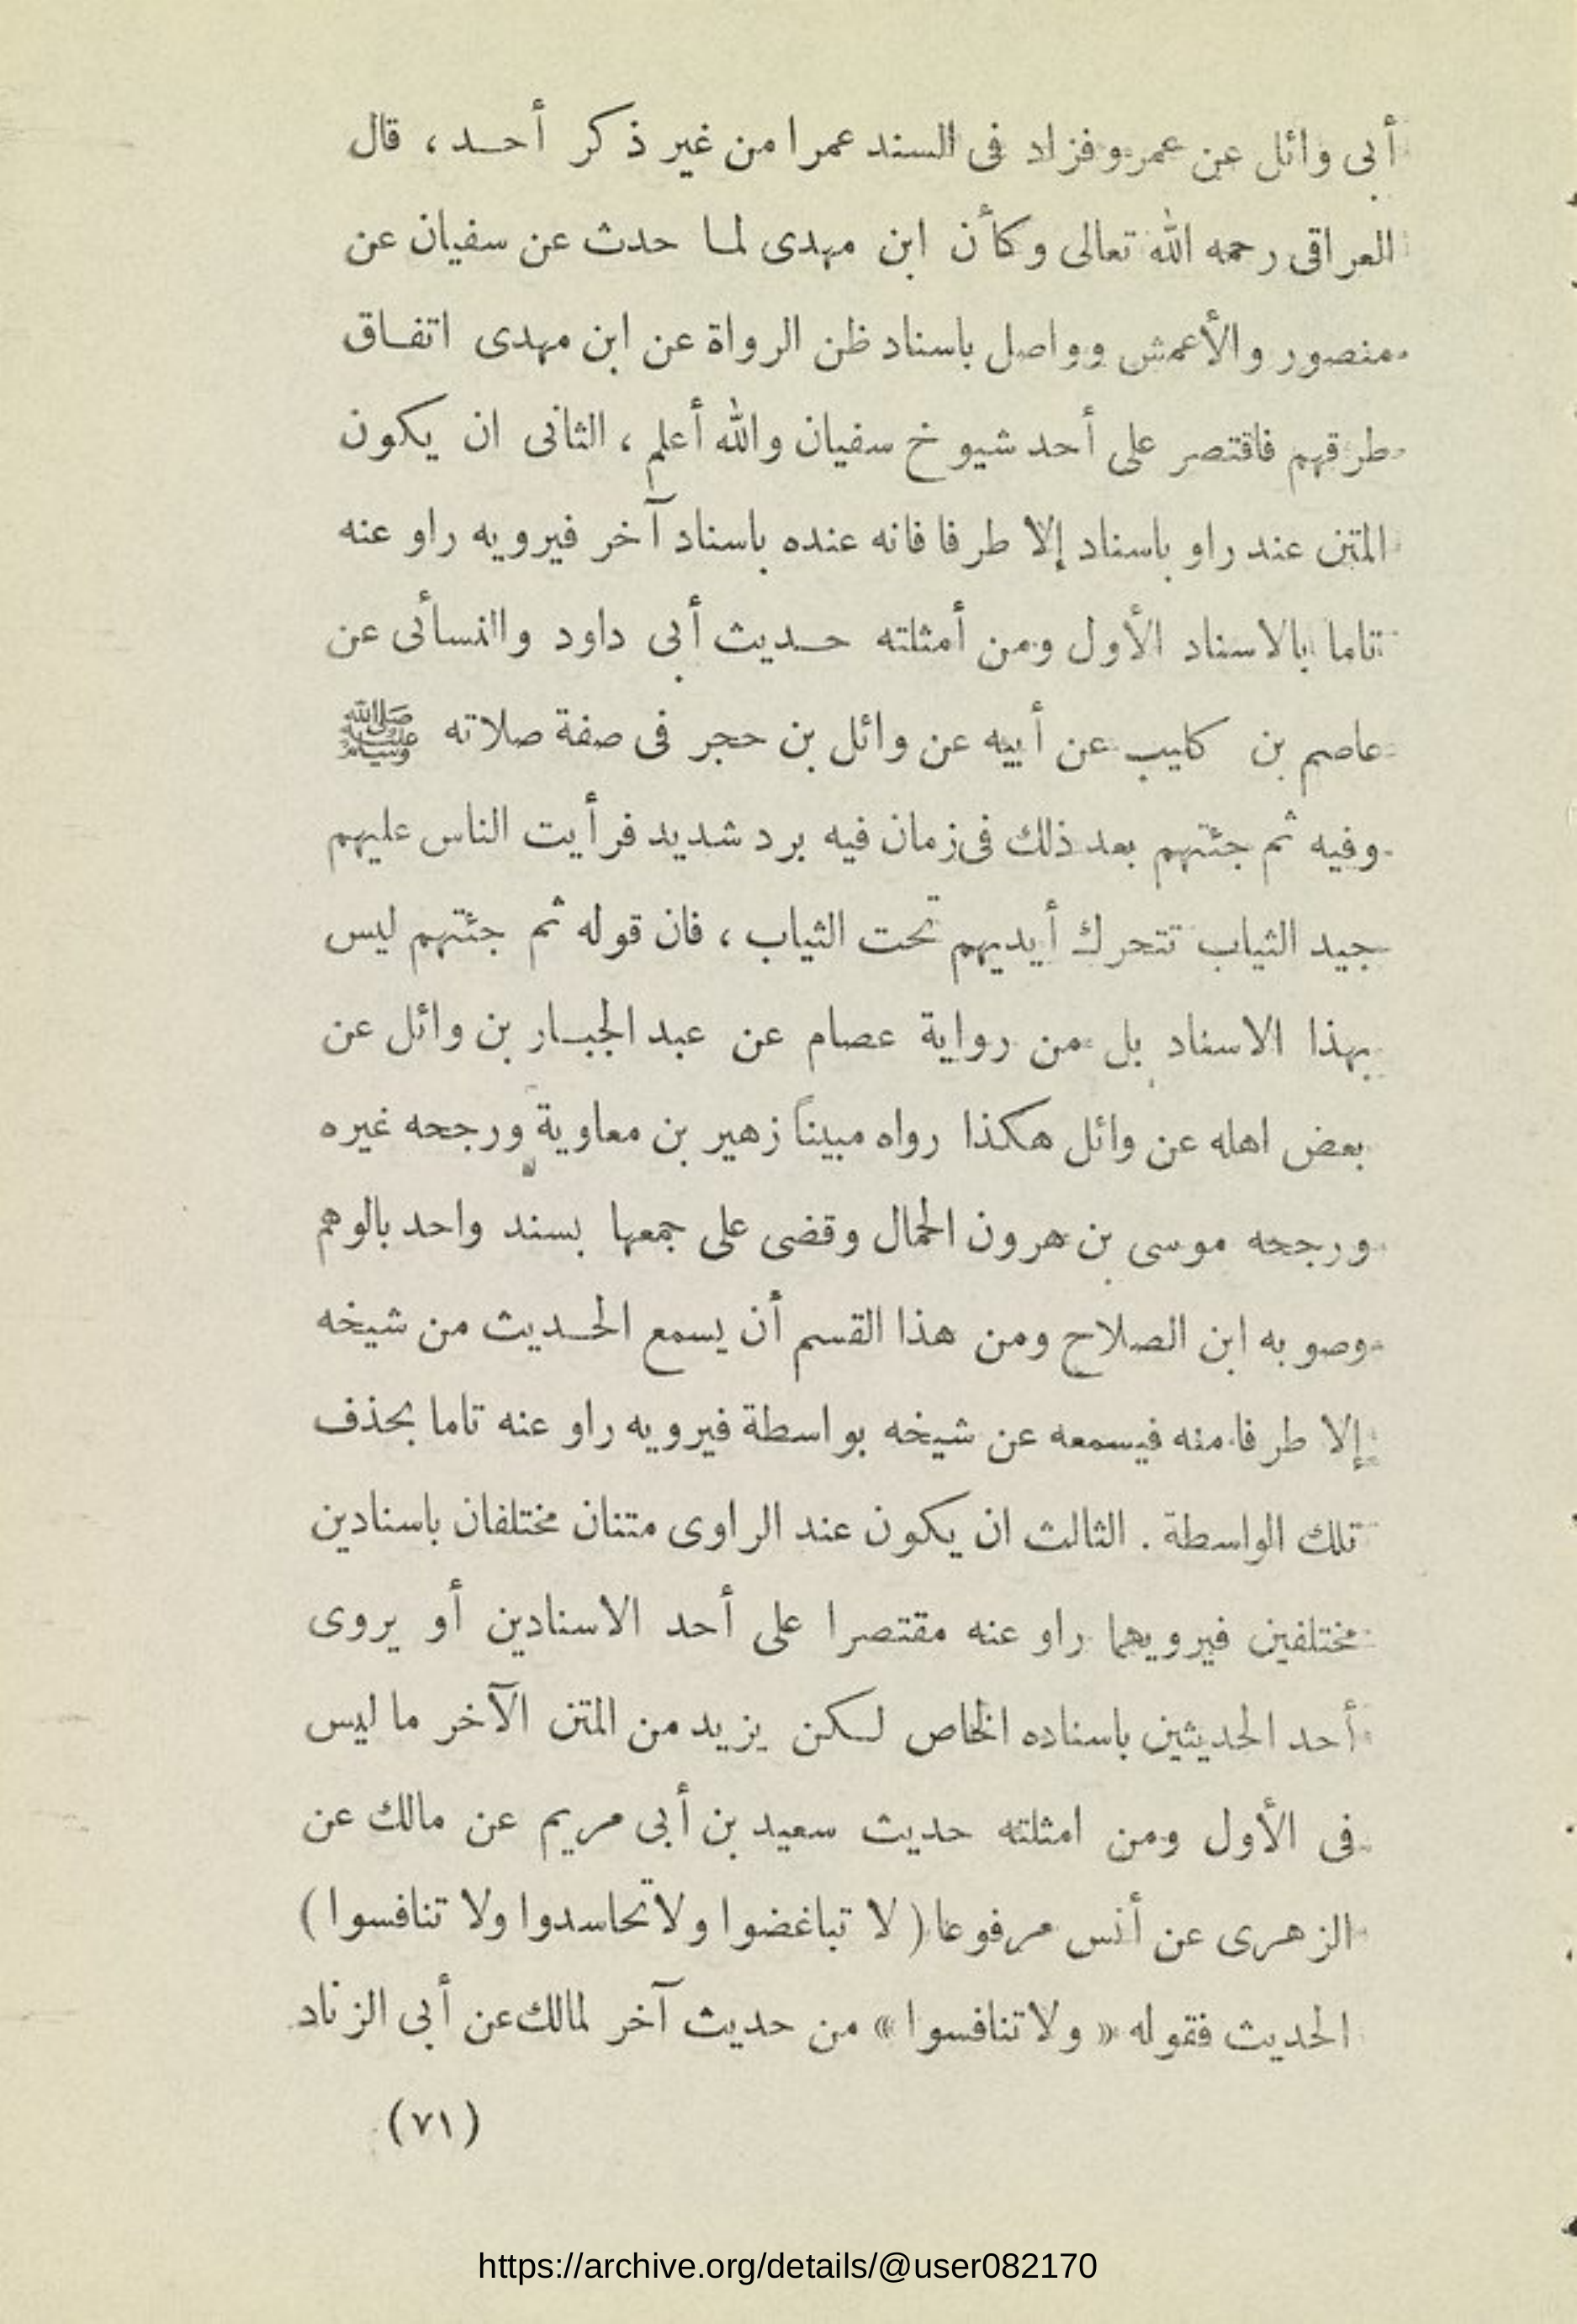 أبى وائل عن عمرو فزاد فى السند عمرا من غير ذكر أحد ، قال
العراقى رحمه الله تعالى وكأن ابن مهدى لما حدث عن سفيان عن
منصور والأعمش وواصل باسناد ظن الرواة عن ابن مهدى اتفاق
طرقهم فاقتصر على أحد شيوخ سفيان والله أعلم ، الثانى ان يكون
المتن عند راو باسناد إلا طرفا فانه عنده باسناد آخر فيرويه راو عنه
تاما بالاسناد الأول ومن أمثلته حديث أبى داود والنسائى عن
عاصم بن كليب عن أبيه عن وائل بن حجر فى صفة صلاته ﷺ
وفيه ثم جئتهم بعد ذلك فى زمان فيه برد شديد فرأيت الناس عليهم
جيد الثياب تتحرك أيديهم تحت الثياب ، فان قوله ثم جئتهم ليس
بهذا الاسناد بل من رواية عصام عن عبد الجبار بن وائل عن
بعض اهله عن وائل هكذا رواه مبيناً زهير بن معاوية ورجحه غيره
ورجحه موسى بن هرون الحمال وقضى على جمعها بسند واحد بالوهم
وصوبه ابن الصلاح ومن هذا القسم أن يسمع الحديث من شيخه
إلا طرفا منه فيسمعه عن شيخه بواسطة فيرويه راو عنه تاما بحذف
تلك الواسطة . الثالث ان يكون عند الراوى متنان مختلفان باسنادين
مختلفين فيرويهما راو عنه مقتصرا على أحد الاسنادين أو يروى
أحد الحديثين باسناده الخاص لكن يزيد من المتن الآخر ما ليس
فى الأول ومن امثلته حديث سعيد بن أبى مريم عن مالك عن
الزهرى عن أنس مرفوعا ( لا تباغضوا ولا تحاسدوا ولا تنافسوا )
الحديث فقوله « ولا تنافسوا » من حديث آخر لمالك عن أبى الزناد
(٧١)
https://archive.org/details/@user082170